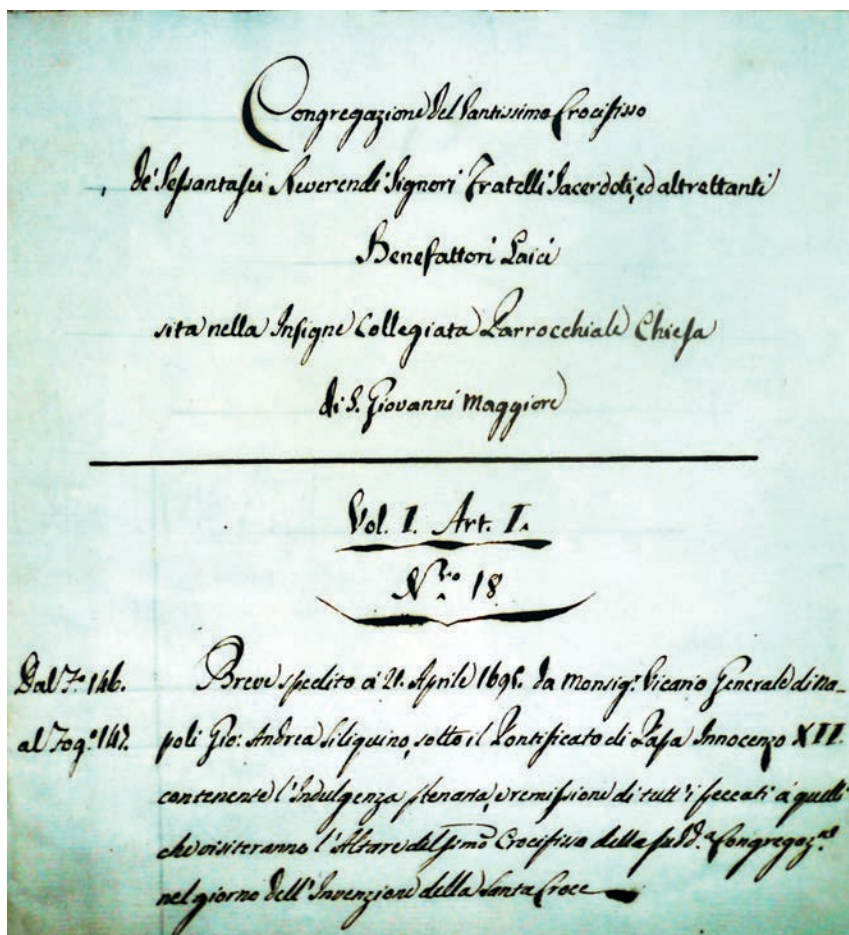 Congregazione del Santissimo Crocifisso
de' Sessantasei Reverendi Signori Fratelli Sacerdoti, ed altrettanti
Benefattori Laici
sita nella Insigne Collegiata Parrocchiale Chiesa
di S. Giovanni Maggiore
Vol. I. Art. I.
N.ro 18
Dal F.o 146.
al Fog.o 147.
Breve spedito a' 21. Aprile 1695. da Monsig.r Vicario Generale di Na-
poli Gio: Andrea Siliquino, sotto il Pontificato di Papa Innocenzo XII.
contenente l'Indulgenza plenaria, e remissione di tutt'i peccati a quelli
che visiteranno l'Altare del SSmo Crocifisso della sudd.a Congregaz.ne
nel giorno dell'Invenzione della Santa Croce